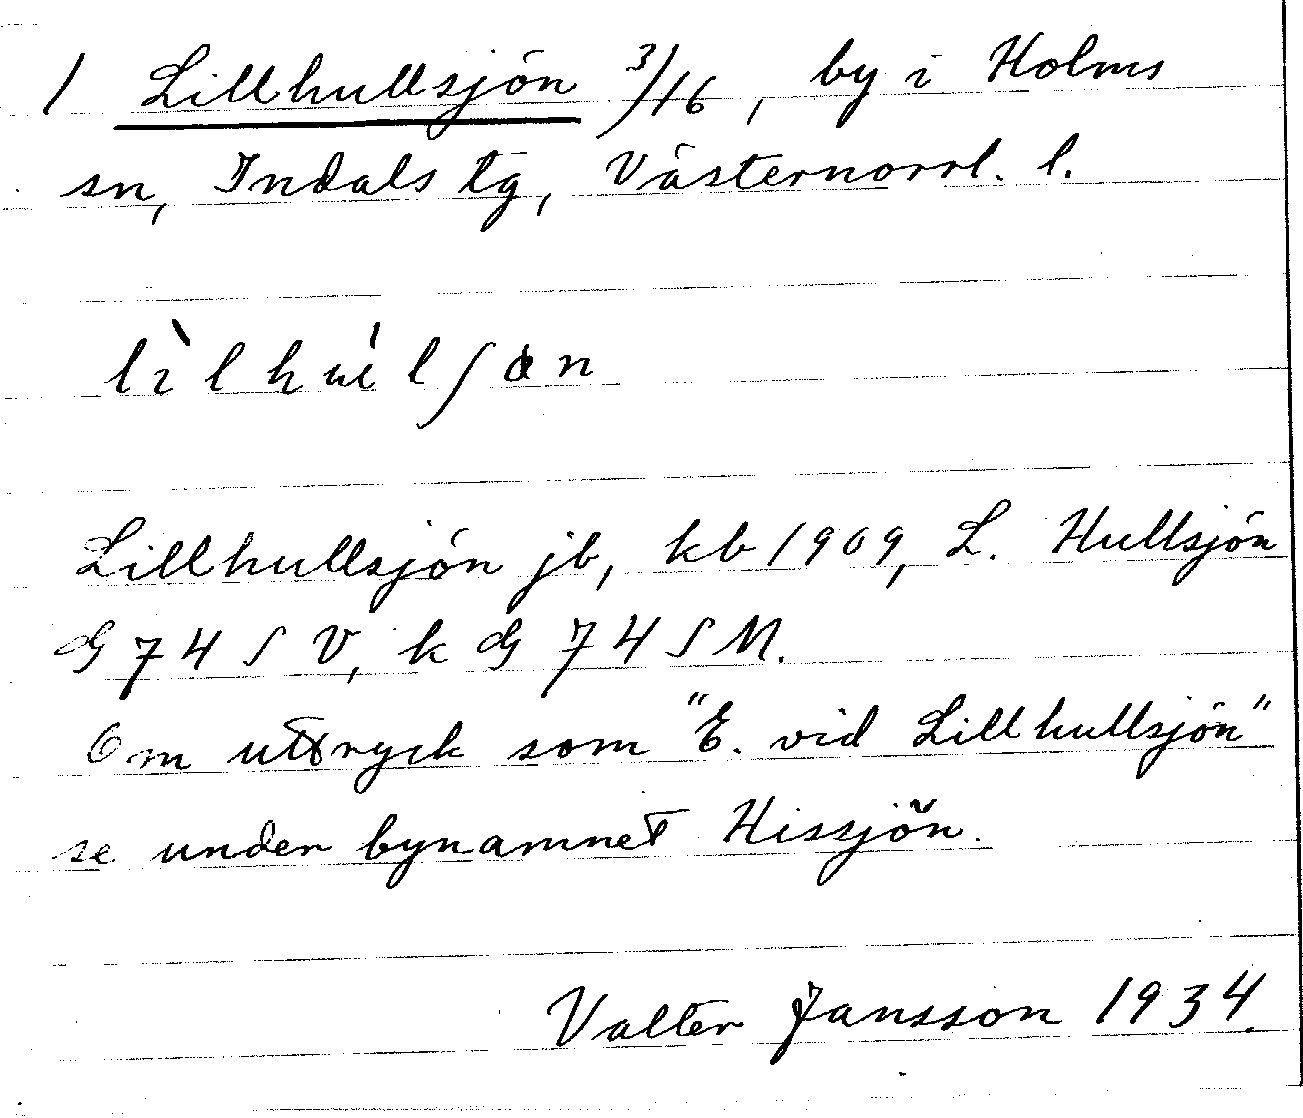 1 Lillhullsjön 3/16, by i Holms
sn, Indals tg, Västernorrl. l.
lìlhu̇́lʃɑn
Lillhullsjön jb, kb 1909, L. Hullsjön
G 74 S V, k G 74 S M.
Om uttryck som "E. vid Lillhullsjön"
se under bynamnet Hissjön.
Valter Jansson 1934.